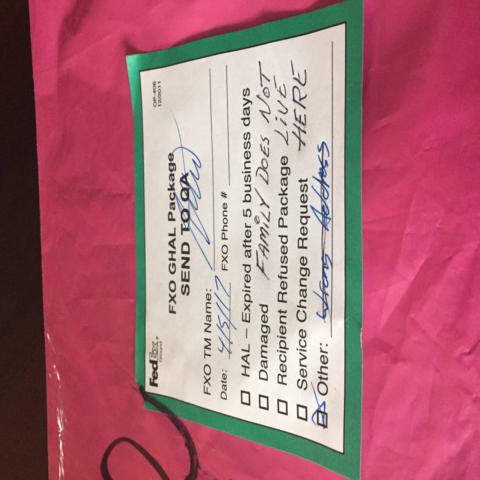 FedEx
Office
Ground
OP-408
12/2011
FXO GHAL Package
SEND TO QA
FXO TM Name:
Date: 4/5/17 FXO Phone #
HAL – Expired after 5 business days
Damaged FAMILY DOES NOT
Recipient Refused Package LIVE
Service Change Request HERE
Other: Wrong Address